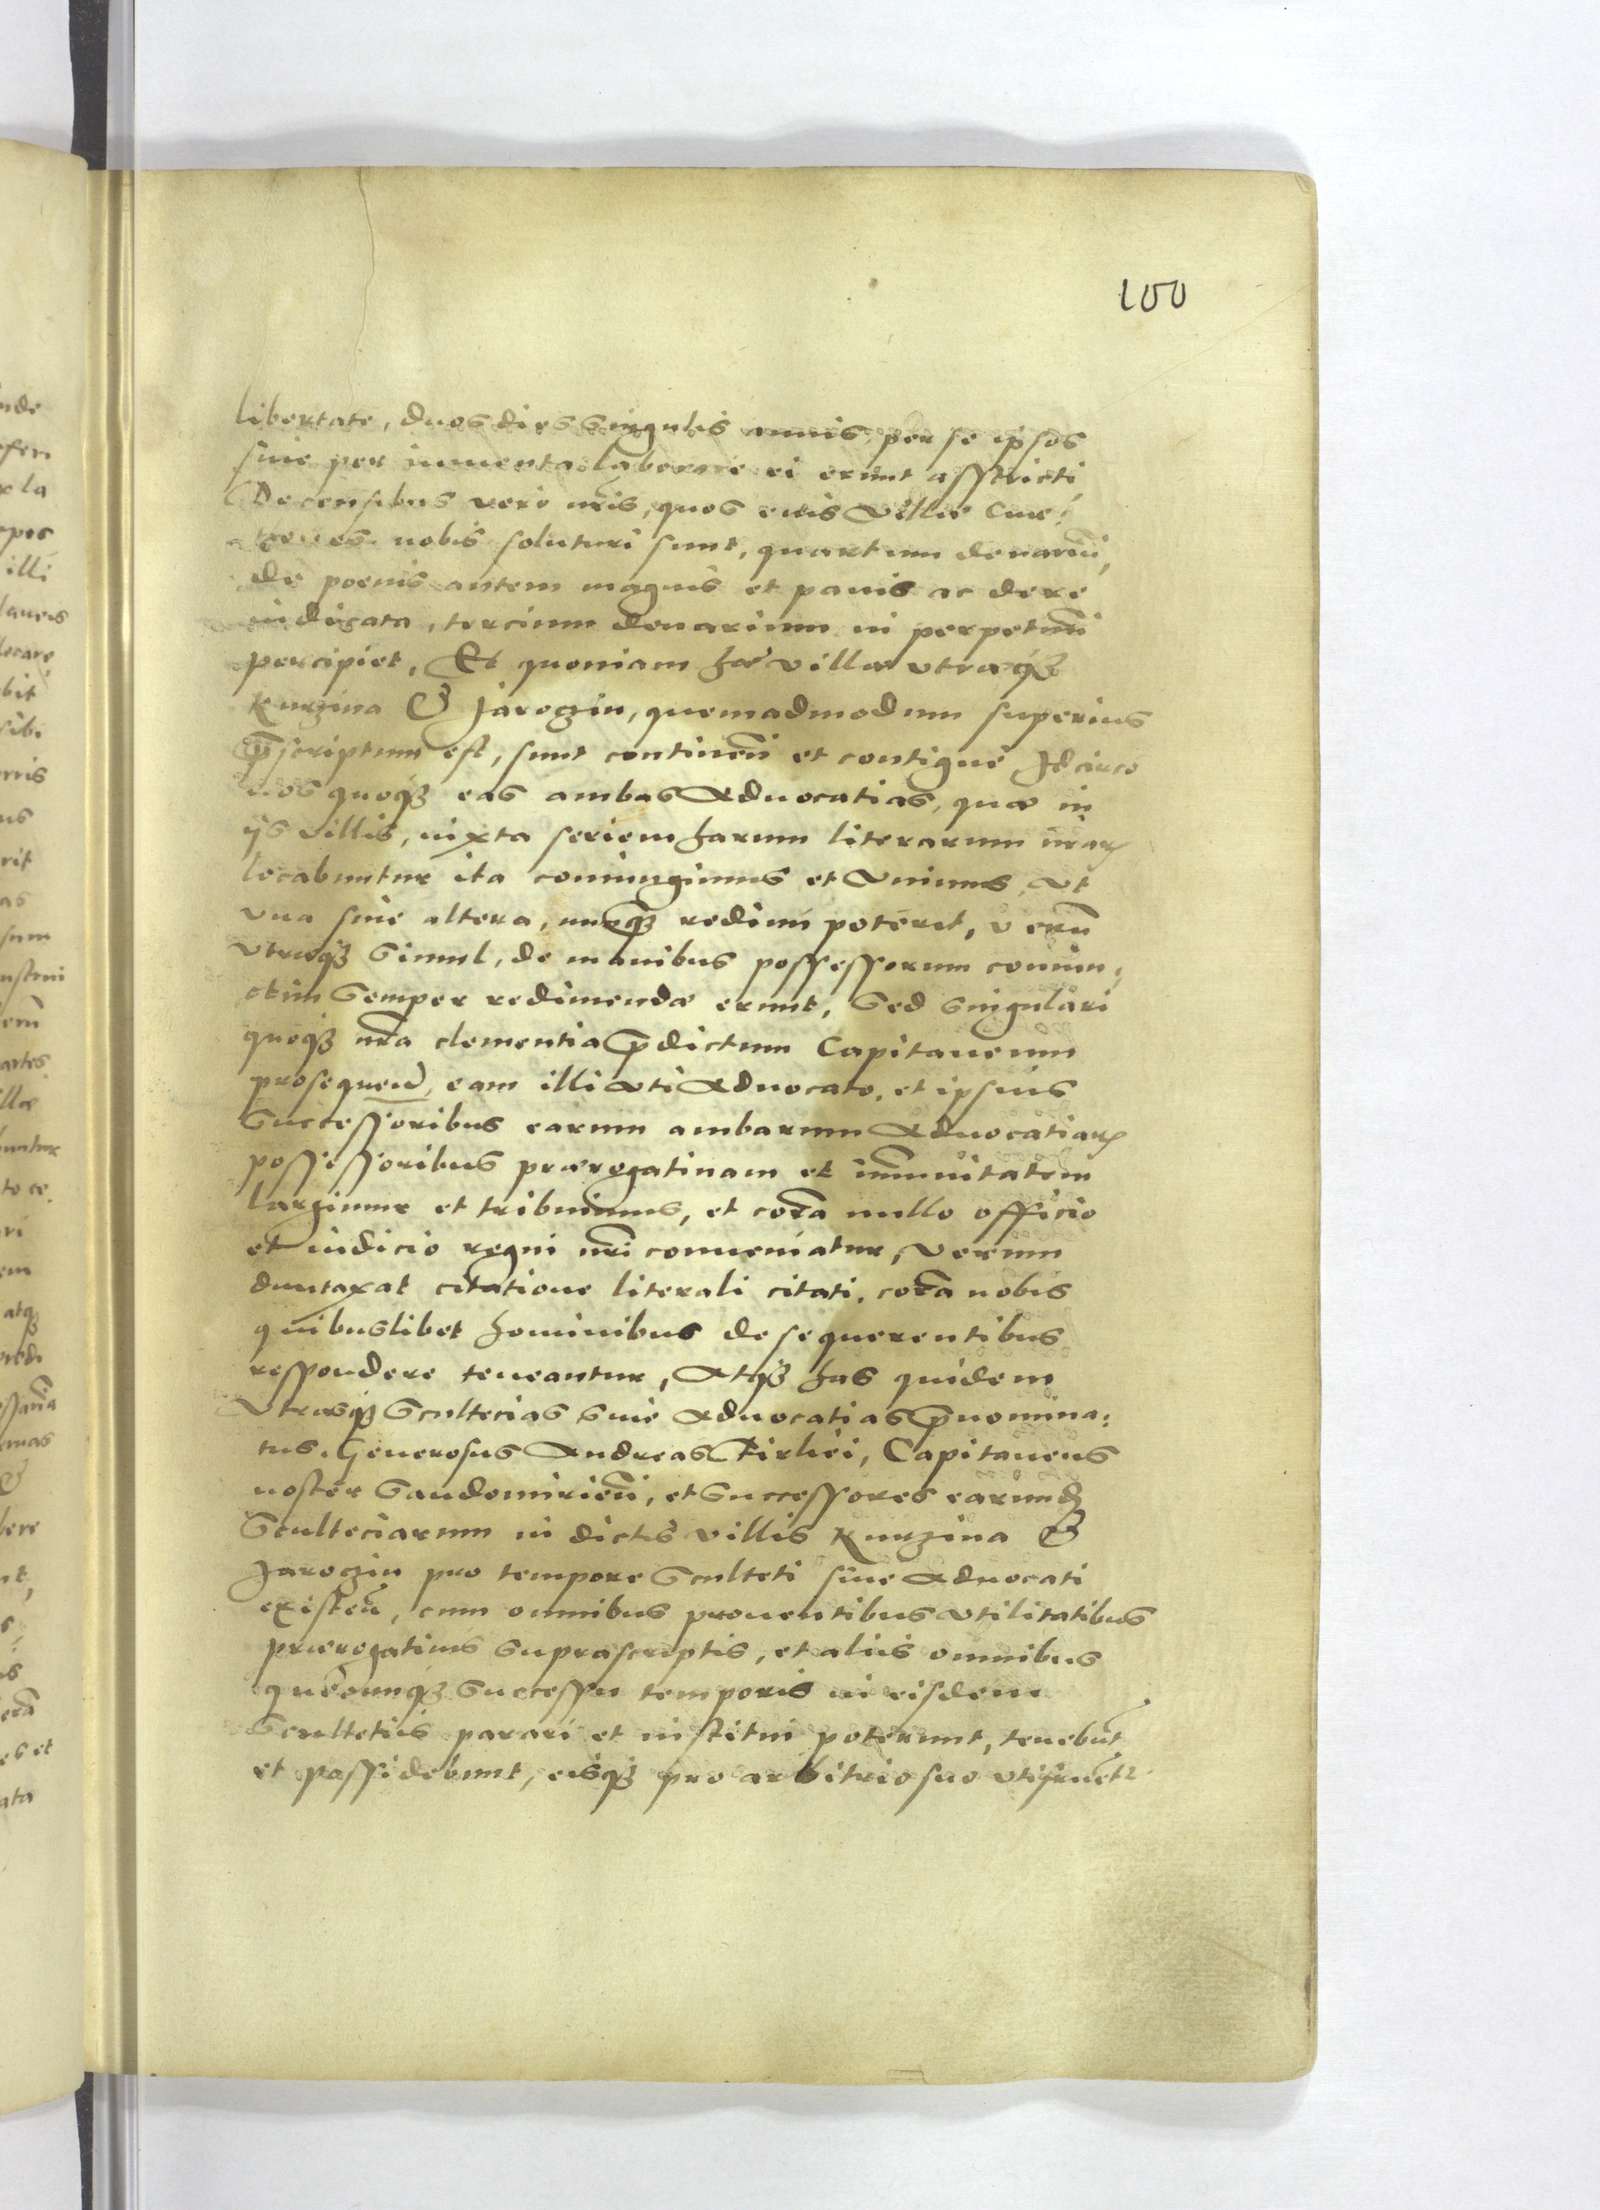 100
libertate, duos dies singulis annis, per se ipsos
siue per iumenta laborare ei erunt asstricti
De censibus vero nris, quos euis Villæ Cme¬
thones nobis soluturi sunt, quartum denariū,
de poenis autem magnis et paruis ac de re
iudicata, tercium denarium in perpetuū
percipiet, Et quoniam hæ villæ vtraeqʒ
Kurzina & Jaroczin, quemadmodum superius
p̄scriptum est, sunt continen̄ et contiguę Idcirco
nos quoqʒ eas ambas Aduocatias, quæ in
ijs villis, iuxta seriem harum literarum nrarꝝ
locabuntur ita coniungimus et Vnimus, vt
vna sine altera, nunqʒ redimi poterit, verū
vtræqʒ simul, de manibus possessorum coniun¬
ctim semper redimendæ erunt, Sed singulari
quoqʒ nr̄a clementia p̄dictum Capitaneum
prosequen̄, eam illi vti Aduocato, et ipsius
Successoribus earum ambarum Aduocatiarꝝ
possessoribus prærogatiuam et im̄unitatem
largimur et tribuimus, et cora nullo officio
et iudicio regni nr̄i conueniatur, verum
duntaxat citatione literali citati, cora nobis
quibuslibet hominibus de se querentibus
respondere teneantur, Atqʒ has quidem
Vtrasqʒ Scultecias siue Aduocatias p̄nomina¬
tus. Generosus Andreas Firlei, Capitaneus
noster Sandomirien̄, et Successores earundʒ
Scultetiarum in dictis villis Kurzina &
Jaroczin pro tempore Sculteti siue Aduocati
existen̄, cum omnibus prouentibus vtilitatibus
prærogatiuis suprascriptis, et aliis omnibus
quęcunqʒ Successu temporis in eisdem
Scultetiis parari et institui poterunt, tenebūt
et possidebunt, eisqʒ pro arbitrio suo vtifruētr